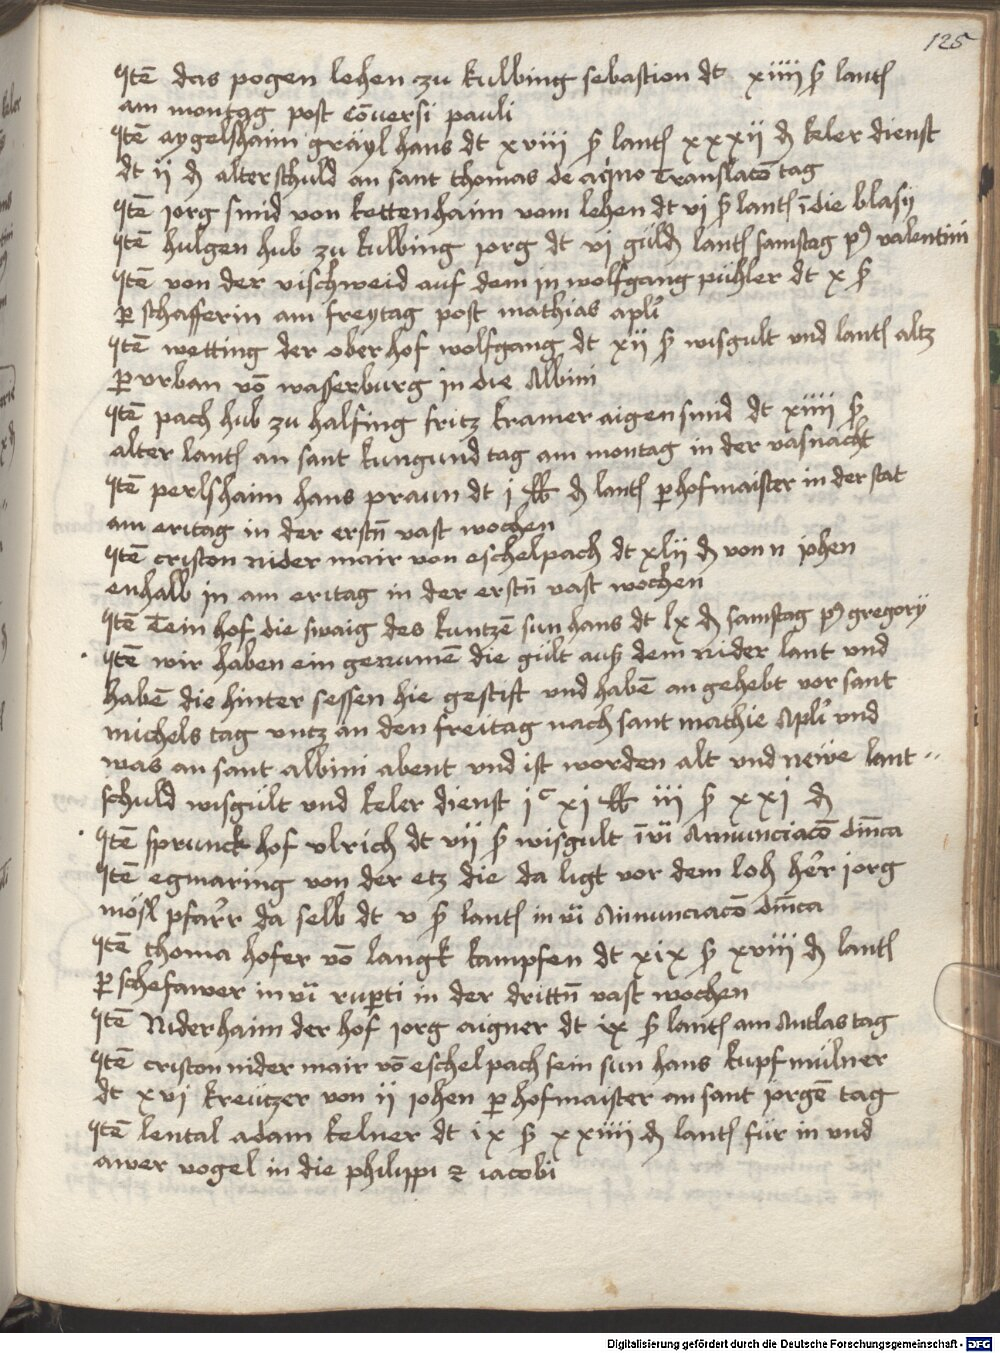 125
Itē das pogen lehen zu kulbing sebastion dt xiiii ß lantß
am montag post cōuersi pauli
Itē aygelshaim gräyl hans dt xviii ß lantß xxxii ₰ keler dienst
dt ii ₰ alter schuld an sant thomas de aq̇no Translacō tag
Itē jorg smid von kettenhaim vom lehen dt vj ß lantß ī die blasÿ
Itē hulgen hub zu kulbing jorg dt vj guld lantß samstag p9 valentini
Itē von der vischweid auf dem jn wolfgang pühler dt x ß
ꝑ schafferin am freytag post mathias apli
Itē wetting der oberhof wolfgang dt xii ß wisgult vnd lantß altz
ꝑ vrban vō wasserburg in die Albini
Itē pach hub zu halfing fritz kramer aigen smid dt xiiii ß
alter lantß an sant kungund tag am montag in der vasnacht
Itē perlshaim hans praun dt j ℔ ₰ lantß ꝑ hofmaister in der stat
am eritag in der erstn̄ vast wochen
Itē criston nider mair von eschelpach dt xlii ₰ von n johen
enhalb jn am eritag in der erstn̄ vast wochen
Itē Tein hof die swaig des kuntzē sun hans dt lx ₰ samstag p9 gregorÿ
Itē wir haben ein genumē die gült auß dem nider lant vnd
habē die hinter sessen hie gestift vnd habē an gehebt vor sant
michels tag vntz an den freitag nach sant mathie Apli vnd
was an sant albini abent vnd ist worden alt vnd newe lant-
schuld wisgült vnd keler dienst jᶜ xj ℔ iii ß xxj ₰
Itē sprunck hof vlrich dt vii ß wisgult ī vi Annunciacō dn̄ica
Itē egmaring von der etz die da ligt vor dem loh her jorg
mösl pfarr da selb dt v ß lantß in vi Annunciacō dn̄ica
Itē thoma hofer vō langk kampfen dt xix ß xviii ₰ lantß
ꝑ schefawer in vi ruperti in der drittn̄ vast wochen
Itē Niderhaim der hof jorg aigner dt ix ß lantß am Antlas tag
Itē criston nider mair vō eschelpach sein sun hans kupfmülner
dt xvj kreützer von ii johen ꝑ hofmaister an sant jorgē tag
Itē lental adam kelner dt ix ß xxiiii ₰ lantß für in vnd
awer vogel in die philippi ⁊ iacobi
Digitalisierung gefördert durch die Deutsche Forschungsgemeinschaft - DFG